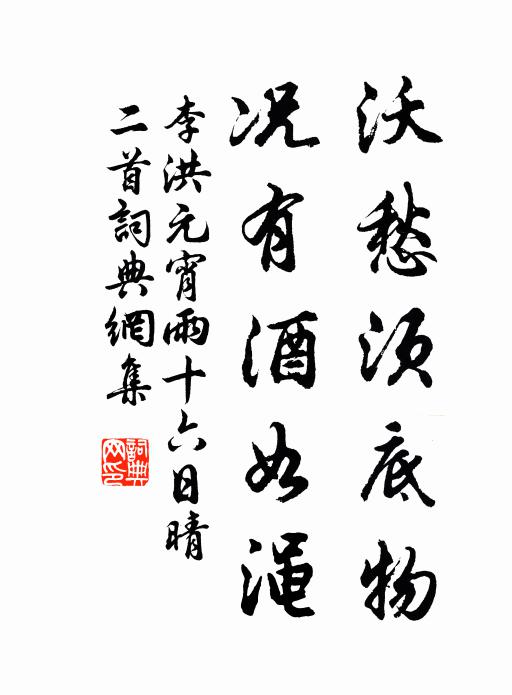 沃愁须底物
况有酒如渑
李洪元宵雨十六日晴
二首詞典網集
詞典网印